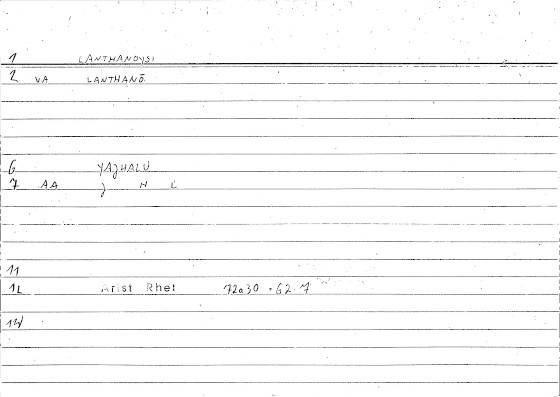 1 LANTHANOYSI
2 VA LANTHANŌ
6 YAJHALU
7 AA J H L
11
12 Arist Rhet 72a30.62.7